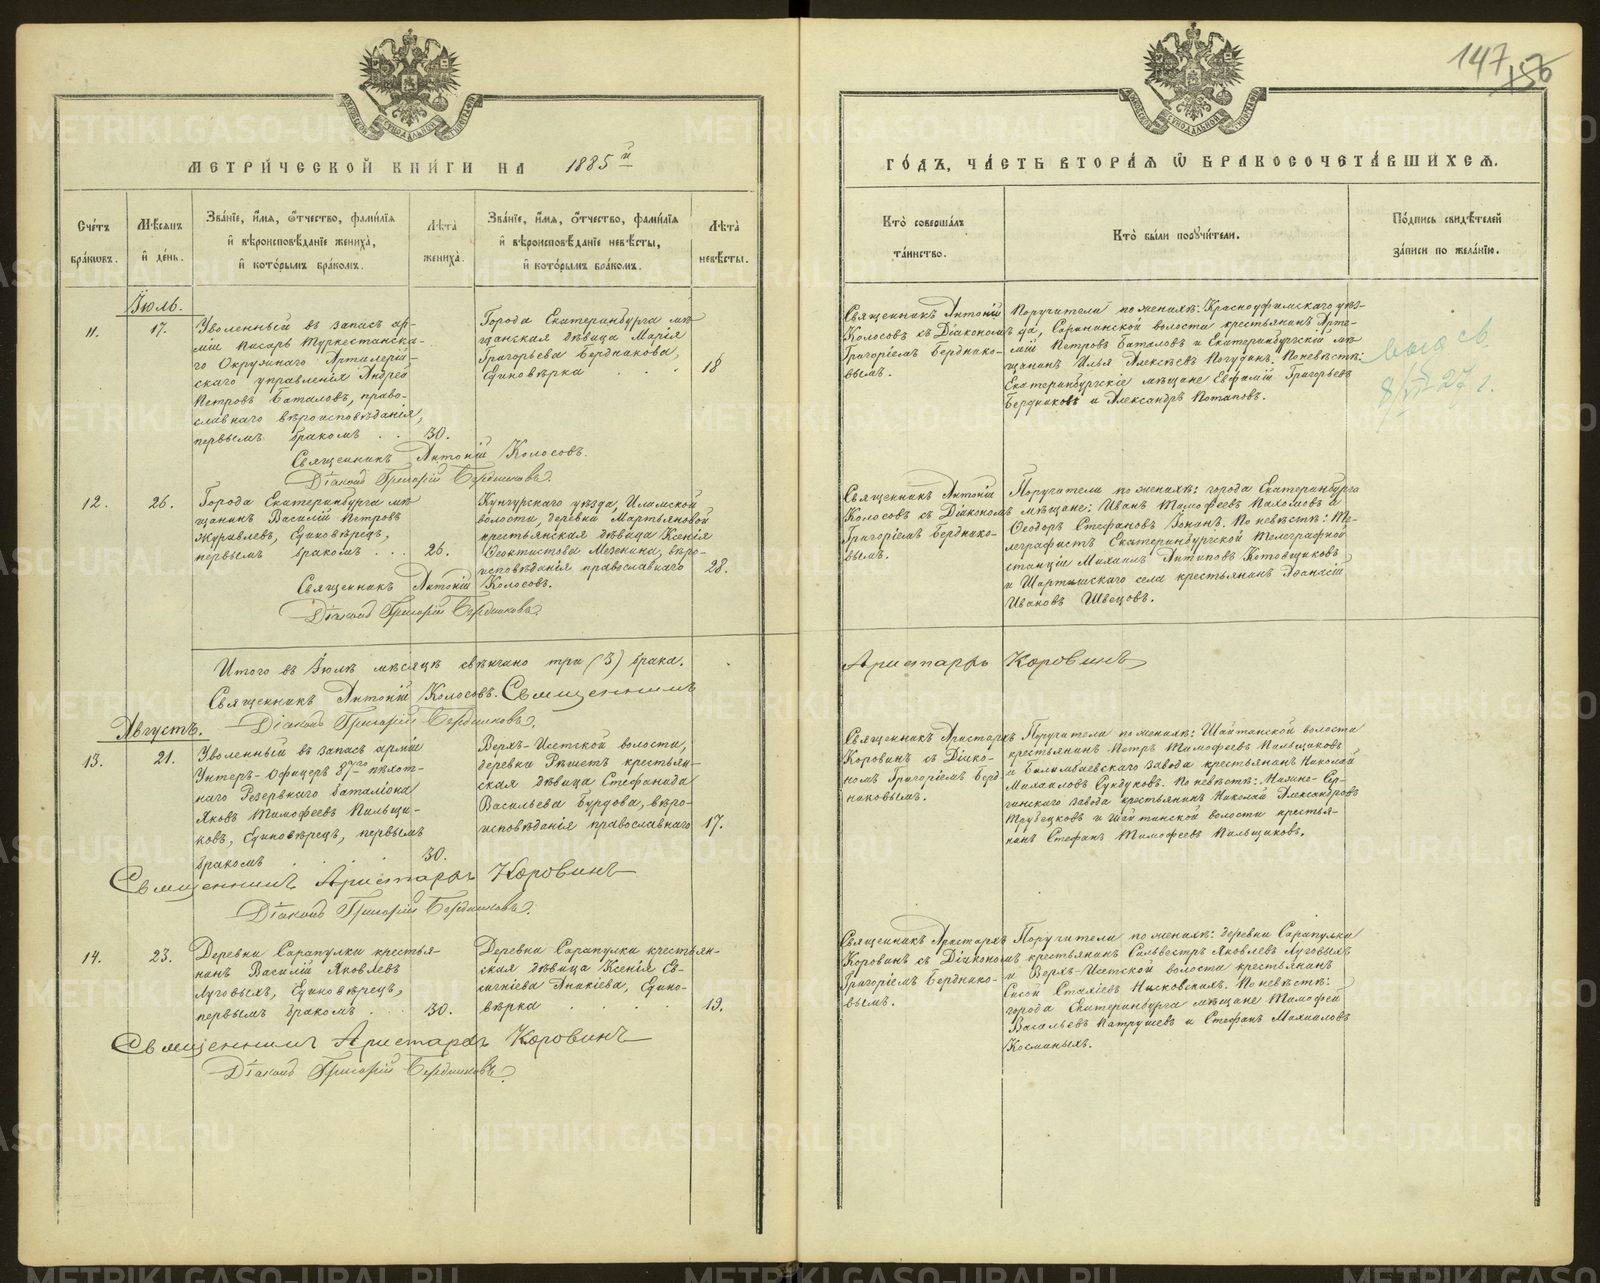 147
156
МЕТРИ́ЧЕСКОЙ КНИ́ГИ НА 1885 й
Сче́тъ бра́ковъ.
Мѣ́сяцъ и҆ де́нь.
Зва́нїе, и҆́мя, ѻ҆́тчество, фами́лїя
и҆ вѣроисповѣ́данїе жениха̀,
и҆ кото́рымъ бра́комъ.
Лѣта̀ жениха̀.
Зва́нїе, и҆́мя, ѻ҆́тчество, фами́лїя
и҆ вѣроисповѣ́данїе невѣ́сты,
и҆ кото́рымъ бра́комъ.
Лѣта̀ невѣ́сты.
Іюль.
11.
17.
Уволенный въ запасъ ар-
міи писарь Туркестанска-
го Окружнаго Артиллерій-
скаго управленія Андрей
Петровъ Баталовъ, право-
славнаго вѣроисповѣданія,
первымъ бракомъ . . 30.
Города Екатеринбурга мѣ-
щанская дѣвица Марія
Григорьева Бердникова,
Единовѣрка . . . 18
Священникъ Антоній Колосовъ.
Діаконъ Григорій Бердниковъ.
12.
26.
Города Екатеринбурга мѣ-
щанинъ Василій Петровъ
Журавлевъ, Единовѣрецъ,
первымъ бракомъ . . . 26.
Кунгурскаго уѣзда, Илимской
волости, деревни Мартьяновой
крестьянская дѣвица Ксенія
Феоктистова Мезенина, вѣро-
исповѣданія православнаго 28.
Священникъ Антоній Колосовъ.
Діаконъ Григорій Бердниковъ.
Итого въ Іюлѣ мѣсяцѣ свѣнчано три (3) брака.
Священникъ Антоній Колосовъ. Священникъ
Діаконъ Григорій Бердниковъ.
Августъ.
13.
21.
Уволенный въ запасъ арміи
Унтеръ-Офицеръ 87го пѣхот-
наго Резервнаго баталіона
Яковъ Тимофеевъ Пальщи-
ковъ, Единовѣрецъ, первымъ
бракомъ . . . 30.
Верхъ-Исетской волости,
деревни Рѣшетъ крестьян-
ская дѣвица Стефанида
Васильева Бурдова, вѣро-
исповѣданія православнаго 17.
Священникъ Аристархъ Коровинъ
Діаконъ Григорій Бердниковъ.
14.
23.
Деревни Сарапулки крестья-
нинъ Василій Яковлевъ
Луговыхъ, Единовѣрецъ,
первымъ бракомъ . . . 30.
Деревни Сарапулки крестьян-
ская дѣвица Ксенія Ев-
Аникіева, Едино-
вѣрка . . . 19.
Священникъ Аристархъ Коровинъ
Діаконъ Григорій Бердниковъ.
ГО́ДЪ, ЧА́СТЬ ВТОРА́Я Ѿ БРАКОСОЧЕТА́ВШИХСЯ.
Кто̀ соверша́лъ та́инство.
Кто̀ бы́ли поручи́тели.
По́дпись свидѣ́телей за́писи по жела́нїю.
Священникъ Антоній
Колосовъ съ Діакономъ
Григоріемъ Бердико-
вымъ.
Поручители по женихѣ: Красноуфимскаго уѣз-
да, Саранинской волости крестьянинъ Арте-
мій Петровъ Баталовъ и Екатеринбургскій мѣ-
щанинъ Илья Алексѣевъ Погудинъ. По невѣстѣ:
Екатеринбургскіе мѣщане Евфимій Григорьевъ
Бердниковъ и Александръ Потаповъ.
св.
8/VI-27 г.
Священникъ Антоній
Колосовъ съ Діакономъ
Григоріемъ Бердико-
вымъ.
Поручители по женихѣ: города Екатеринбурга
мѣщане: Иванъ Тимофеевъ Пахомовъ и
Феодоръ Стефановъ Зонинъ. По невѣстѣ: Те-
леграфистъ Екатеринбургской телеграфной
станціи Михаилъ Антиповъ Котовщиковъ
и Шарташскаго села крестьянинъ Афанасій
Ивановъ Швецовъ.
Аристархъ Коровинъ
Священникъ Аристархъ
Коровинъ съ Діако-
номъ Григоріемъ Берд-
никовымъ.
Поручители по женихѣ: Шайтанской волости
крестьянинъ Петръ Тимофеевъ Пальщиковъ
и Билимбаевскаго завода крестьянинъ Николай
Михаиловъ Сундуковъ. По невѣстѣ: Нижне-Сер-
гинскаго завода крестьянинъ Николай Александровъ
Трубецковъ и Шайтанской волости крестья-
нинъ Стефанъ Тимофеевъ Пальщиковъ.
Священникъ Аристархъ
Коровинъ съ Діакономъ
Григоріемъ Бердико-
вымъ.
Поручители по женихѣ: деревни Сарапулки
крестьянинъ Сильвестръ Яковлевъ Луговыхъ
и Верхъ-Исетской волости крестьянинъ
Сисой Стахіевъ Нисковскихъ. По невѣстѣ:
города Екатеринбурга мѣщане Тимофей
Васильевъ Патрушевъ и Стефанъ Михаиловъ
Косминыхъ.
METRIKI.GASO-URAL.RU